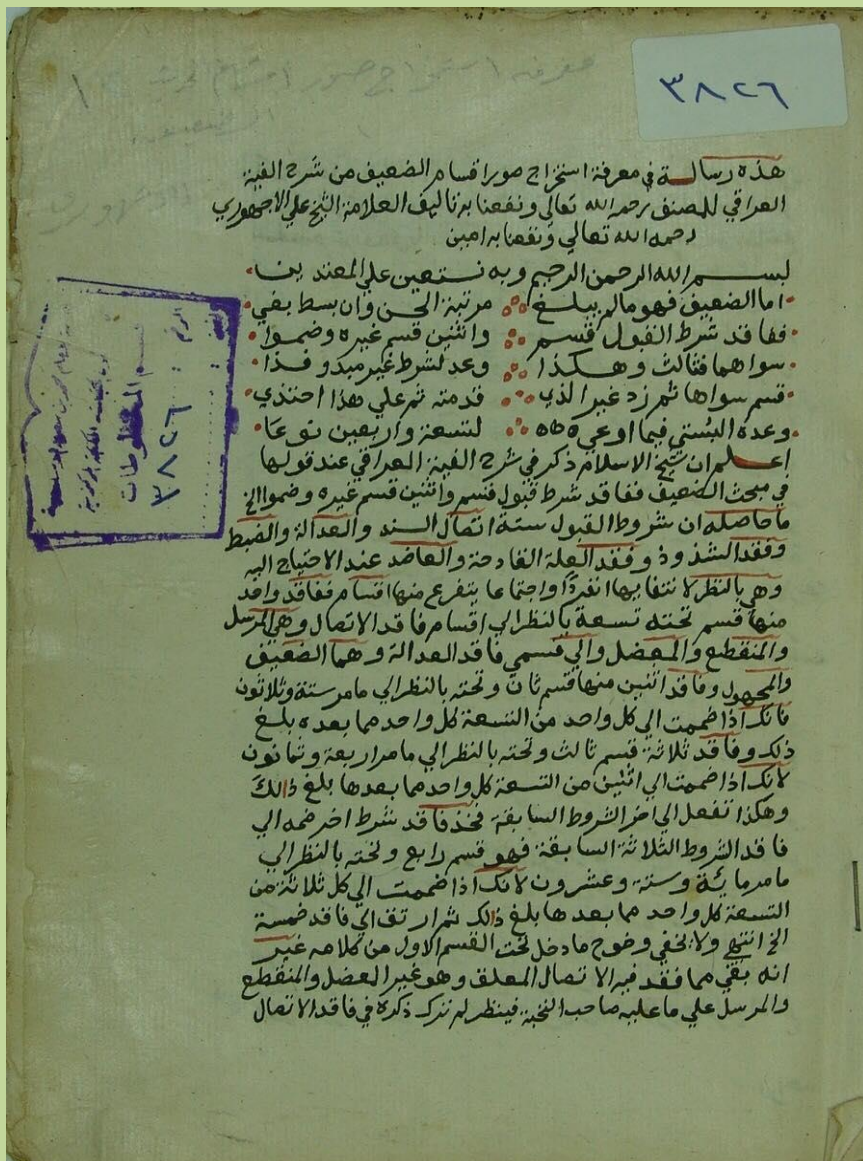 معرفة استخراج صور اقسام
٣٨٢٦
هذه رسالة في معرفة استخراج صور اقسام الضعيف من شرح الفية
العراقي للمصنف رحمه الله تعالي ونفعنا به تاليف العلامة الشيخ علي الاجهوري
رحمه الله تعالي ونفعنا به امين
بسم الله الرحمن الرحيم وبه نستعين علي المعتدين
اما الضعيف فهو ما لم يبلغ مرتبة الحسن وان بسط بغي
ففاقد شرط القبول قسم واثنين قسم غيره وضموا
سواهما فثالث وهكذا وعد لشرط غير مبدو فذا
قسم سواها ثم زد غير الذي قدمته ثم علي هذا احتذي
وعده البستي فيما اوعي لتسعة واربعين نوعا
اعلم ان شيخ الاسلام ذكر في شرح الفية العراقي عند قولها
في مبحث الضعيف ففاقد شرط قبول قسم واثنين قسم غيره وضموا الخ
ما حاصله ان شروط القبول ستة اتصال السند والعدالة والضبط
وفقد الشذوذ وفقد العلة القادحة والعاضد عند الاحتياج اليه
وهي بالنظر لانتفايها انفردا واجتماعا يتفرع منها اقسام ففاقد واحد
منها قسم تحته تسعة بالنظر الي اقسام فاقد الاتصال وهي المرسل
والمنقطع والمعضل والي قسمي فاقد العدالة وهما الضعيف
والمجهول وفاقد اثنين منها قسم ثان وتحته بالنظر الي ما مر ستة وثلاثون
فانك اذا ضممت الي كل واحد من التسعة كل واحد مما بعده بلغ
ذلك وفاقد ثلاثة قسم ثالث وتحته بالنظر الي ما مر اربعة وثمانون
لانك اذا ضممت الي اثنين من التسعة كل واحد مما بعدها بلغ ذالك
وهكذا تفعل الي اخر الشروط السابقة فخذ فاقد شرط اخر ضمه الي
فاقد الشروط الثلاثة السابقة فهو قسم رابع وتحته بالنظر الي
ما مر ماية وستة وعشرون لانك اذا ضممت الي كل ثلاثة من
التسعة كل واحد مما بعدها بلغ ذالك ثم ارتق الي فاقد خمسة
الخ انتهي ولا يخفي وضوح ما دخل تحت القسم الاول من كلامه غير
انه بقي مما فقد فيه الاتصال المعلق وهو غير العضل والمنقطع
والمرسل علي ما عليه صاحب النخبة فينظر لم ترك ذكره في فاقد الاتصال
قسم المخطوطات
٣٨٢٦